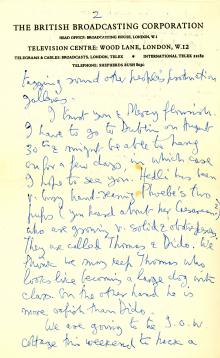 2
THE BRITISH BROADCASTING CORPORATION
HEAD OFFICE: BROADCASTING HOUSE, LONDON, W.1
TELEVISION CENTRE: WOOD LANE, LONDON, W.12
TELEGRAMS & CABLES: BROADCASTS, LONDON, TELEX * INTERNATIONAL TELEX 22182
TELEPHONE: SHEPHERDS BUSH 8030
round other people's production
galleries.
I trust you & Mercy flourish.
I have to go to Dublin on August
30th & might be able to hang
on for a few days in which case
I hope to see you. Helli has been
v. busy hand-rearing Phoebe's two
pups (you heard about her Caesarean)
who are growing v. solid & obstreperous.
They are called Thomas & Dido. We
think we may keep Thomas who
looks like becoming a large dog with
class. On the other hand he is
more selfish than Dido.
We are going to the I.O.W.
cottage this weekend to hack a